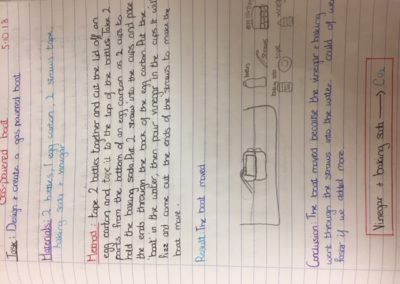 Gas powered boat 5.10.18
Task: Design & create a gas powered boat.
Materials: 2 bottles, 1 egg carton, 2 straws, tape,
baking soda + vinegar
Method: tape 2 bottles together and cut the lid off an
egg carton and tape it to the top of the bottles. Take 2
parts from the bottom of an egg carton as 2 cups to
hold the baking soda. Put 2 straw into the cups and poke
the ends through the back of the egg carton. Put the
'boat' in the water, then pour vinegar in the cups. It will
fizz and come out the ends of the straws to make the
boat move.
Result: The boat moved
bottles
straws
baking soda
tape
Conclusion: The boat moved because the vinegar + baking
went through the straws into the water. could of went
faser if we added more.
Vinegar + baking soda → Co2